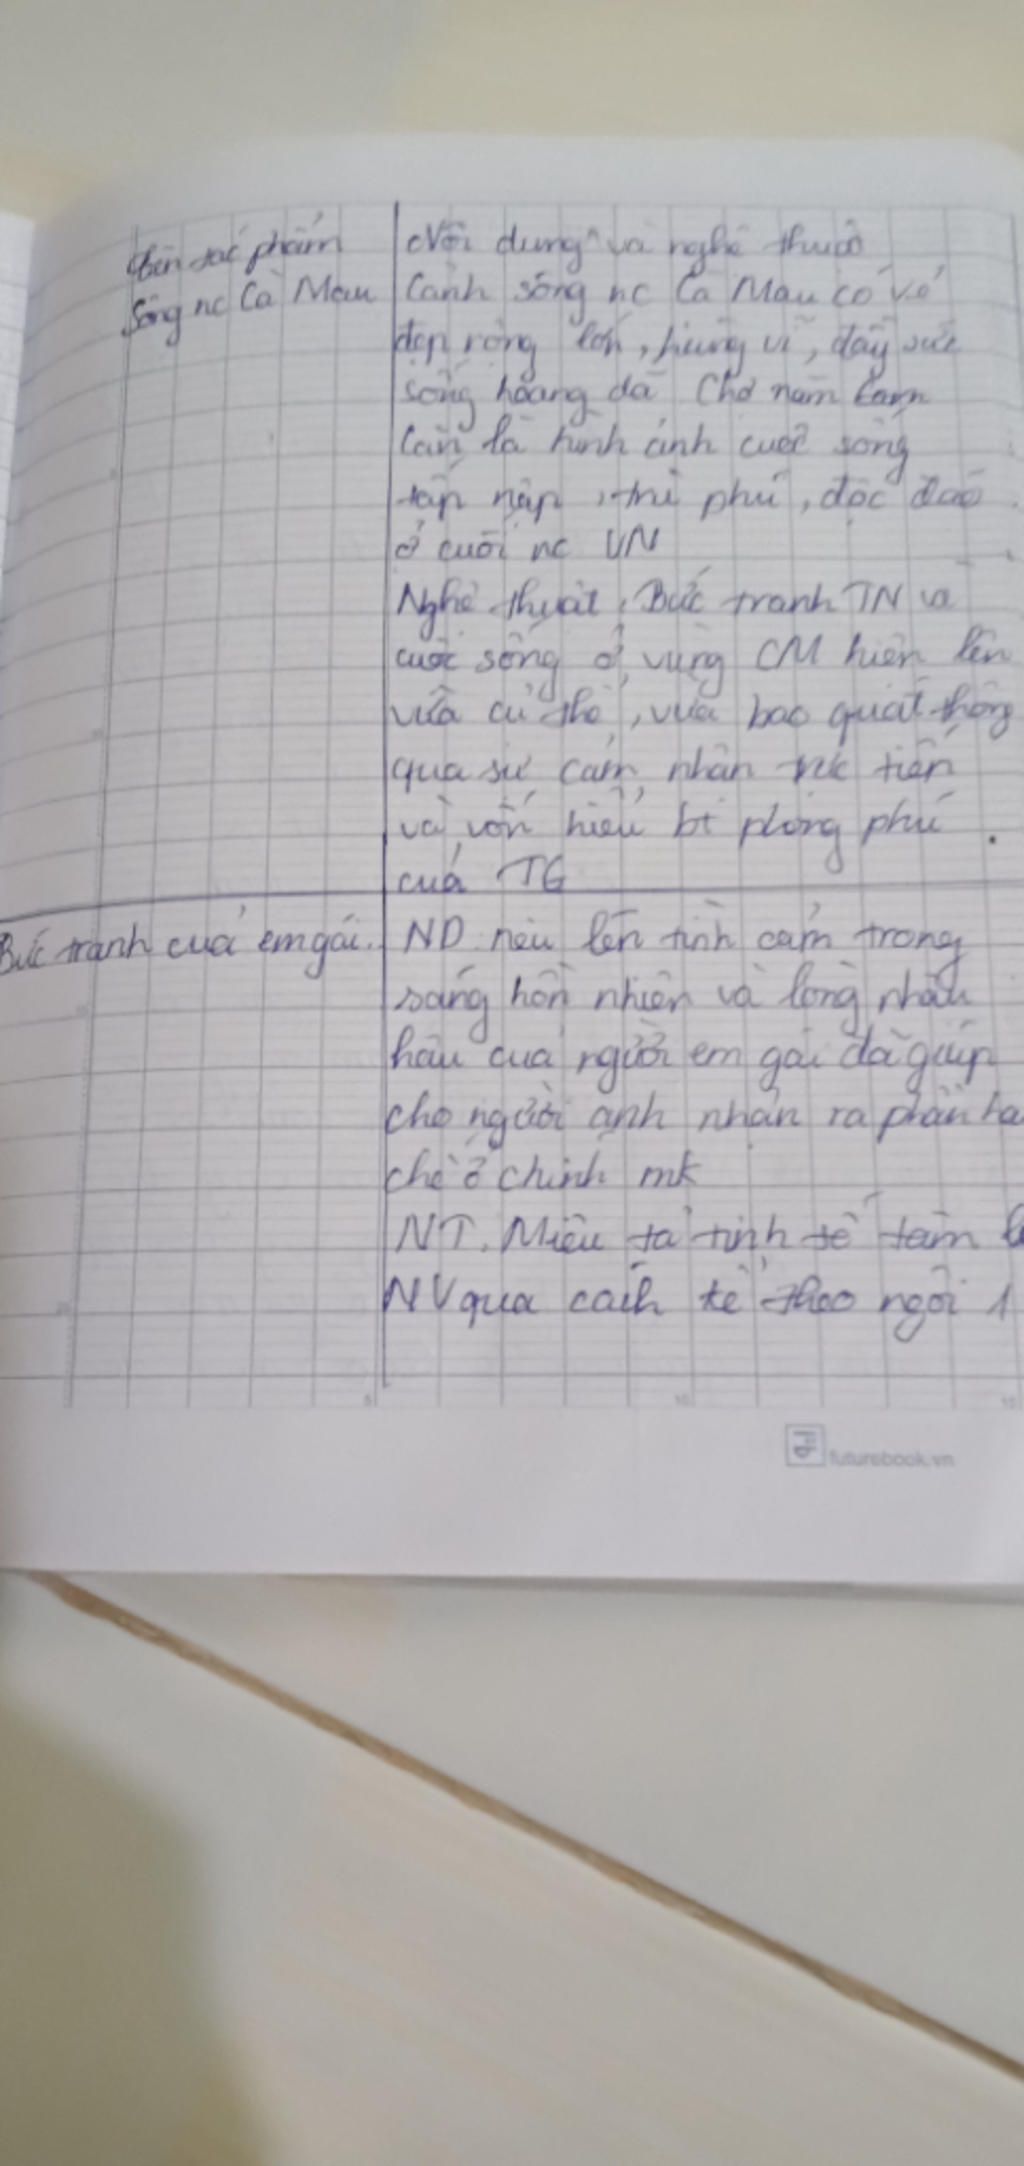 Tên tác phẩm
Sông nc Cà Mau
Nội dung và nghệ thuật
Cảnh sông nc Cà Mau có vẻ
đẹp rộng lớn, hùng vĩ, đầy sức
sống hoang dã Chợ năm
Căn là hình ảnh cuộc sống
tấp nập, trù phú, độc đáo
ở cuối nc VN
Nghệ thuật, Bức tranh TN và
cuộc sống ở vùng CM hiện lên
vừa cụ thể, vừa bao quát thông
qua sự cảm nhận tiếp
và vốn hiểu bt phong phú
của TG
Bức tranh của em gái.
ND nêu lên tình cảm trong
sáng hồn nhiên và lòng nhân
hậu của người em gái đã giúp
cho người anh nhận ra phần hạ
chế ở chính mk
NT. Miêu tả tinh tế tâm
NV qua cách kể theo ngôi 1
futurebook.vn